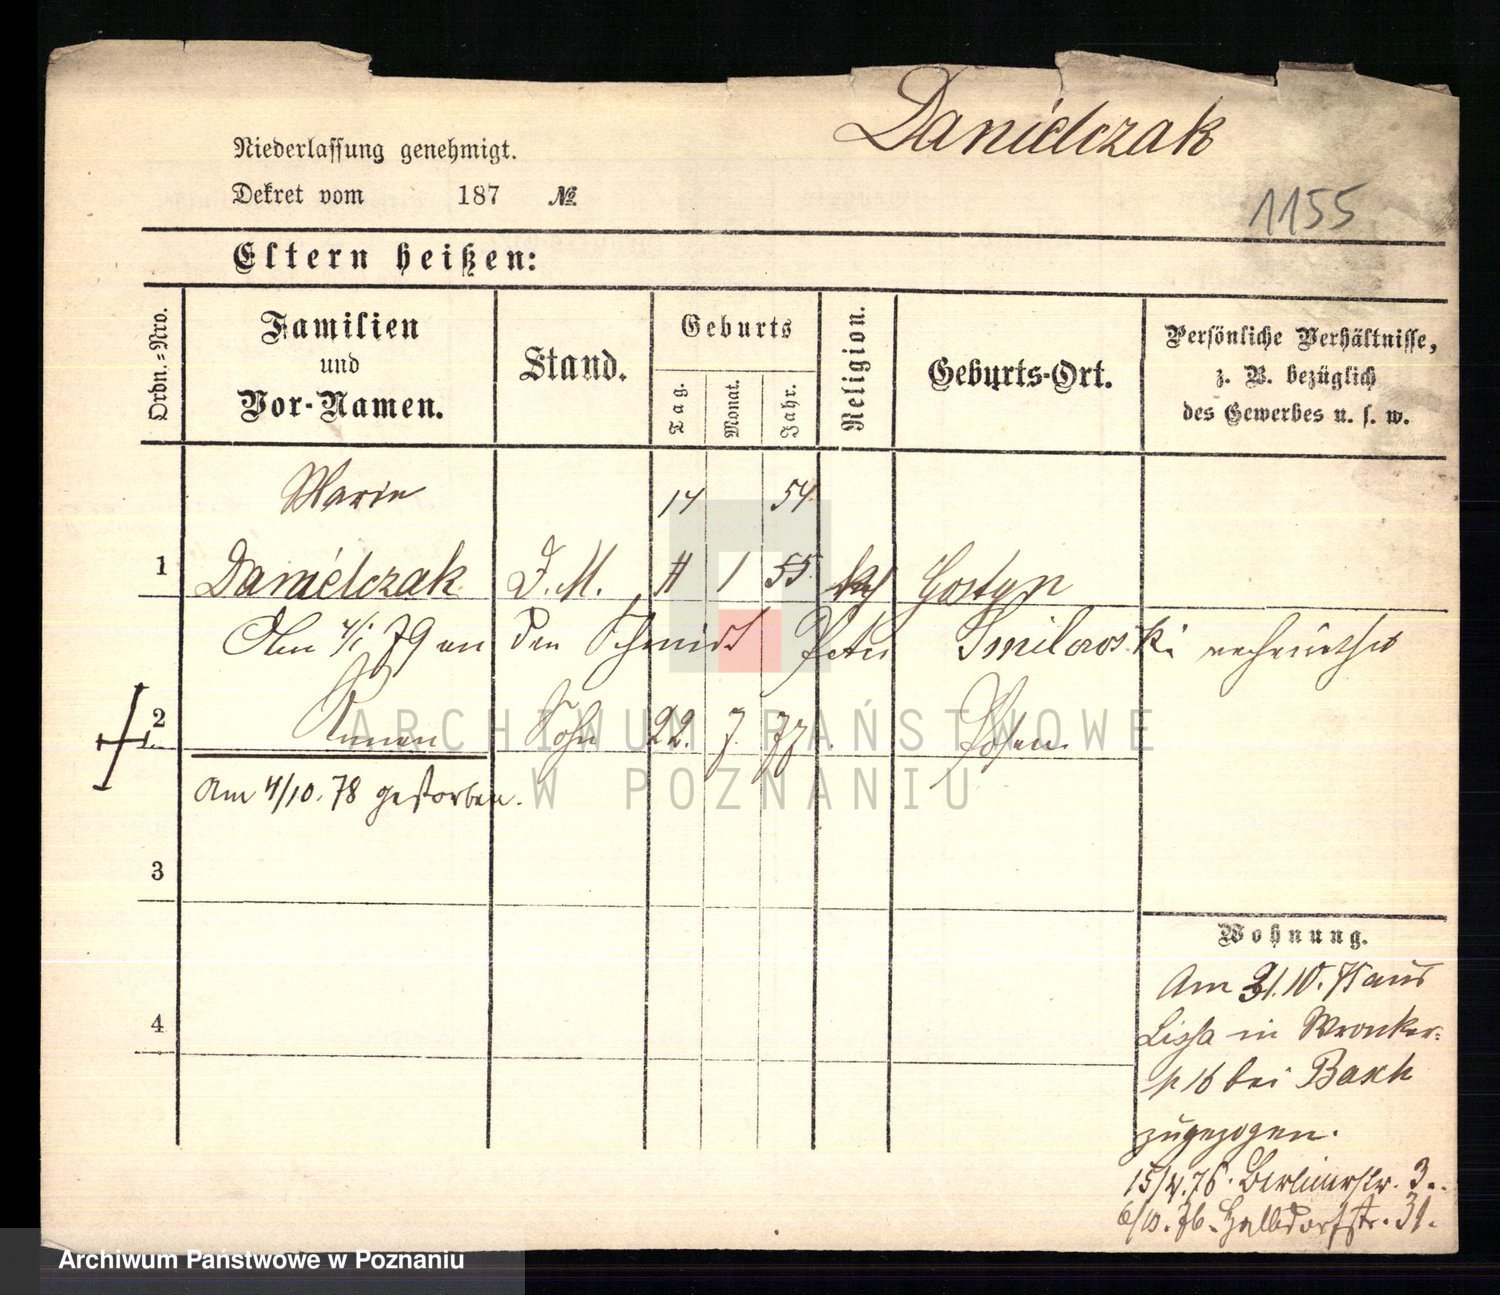 Danielczak
Niederlassung genehmigt.
Dekret vom 187 №
1155
Eltern heißen:
Ordn.-Nro.
Familien
und
Vor-Namen.
Stand.
Geburts
Tag.
Monat.
Jahr.
Religion.
Geburts-Ort.
Persönliche Verhältnisse,
z. B. bezüglich
des Gewerbes u. s. w.
Marie 14 54
1 Danielczak D. M. 1 55 Gostyn
79 an den Schmidt Peter verheirathet
2 Roman Sohn 22. 7. 77. Posen
Am 4/10. 78 gestorben.
3
4
Wohnung.
Am 10. 75 aus
Lissa in Wronker-
p 16 bei Basch
zugezogen.
15/4. 76. Berlinerstr. 3.
6/10. 76. Halbdorfstr. 31.
ARCHIWUM PAŃSTWOWE
W POZNANIU
Archiwum Państwowe w Poznaniu